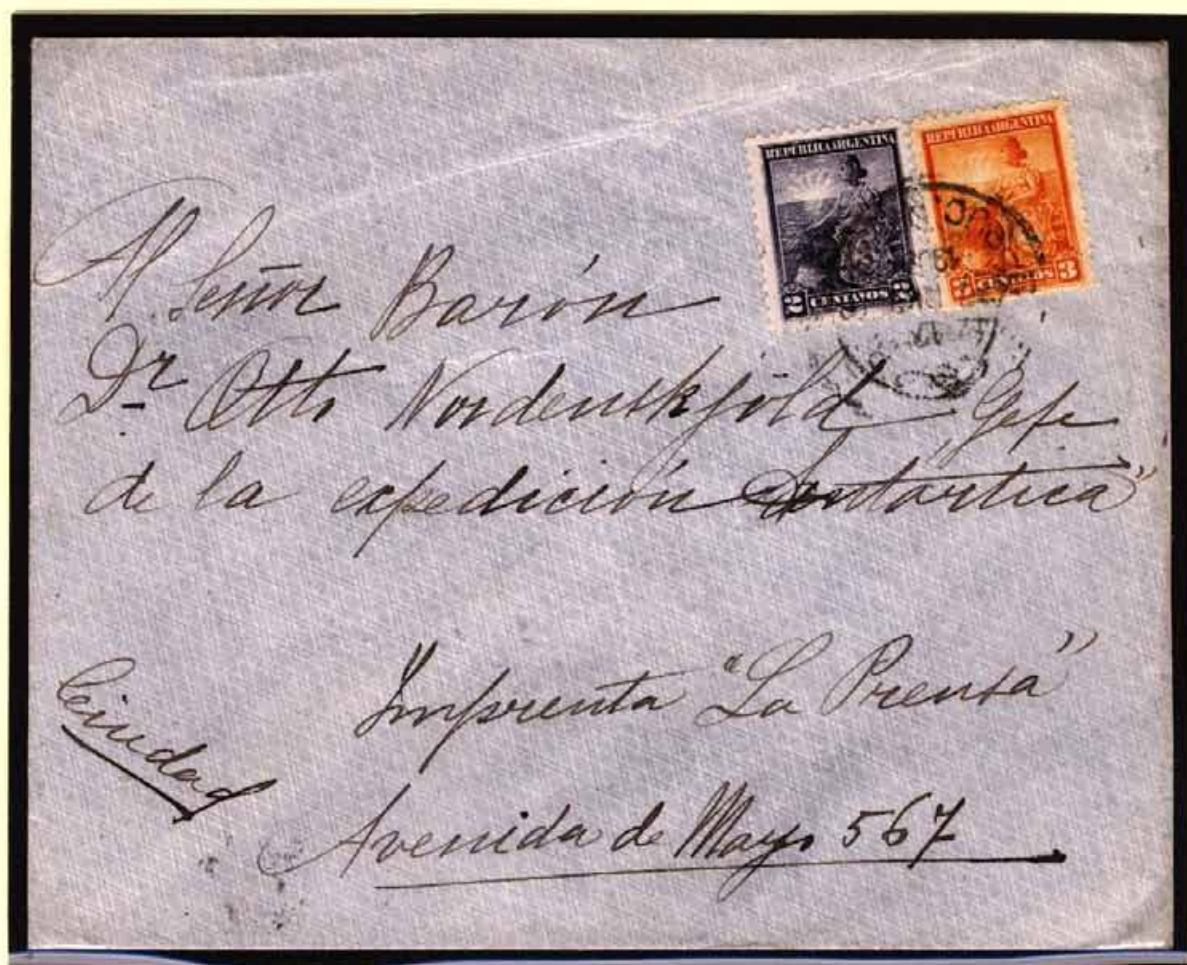 REPUBLICA ARGENTINA
2 CENTAVOS 2
REPUBLICA ARGENTINA
3
Al Señor Barón
Dr Otto Nordenskjöld Gefe
de la expedición Antartica"
Imprenta "La Prensa"
Ciudad
Avenida de Mayo 567